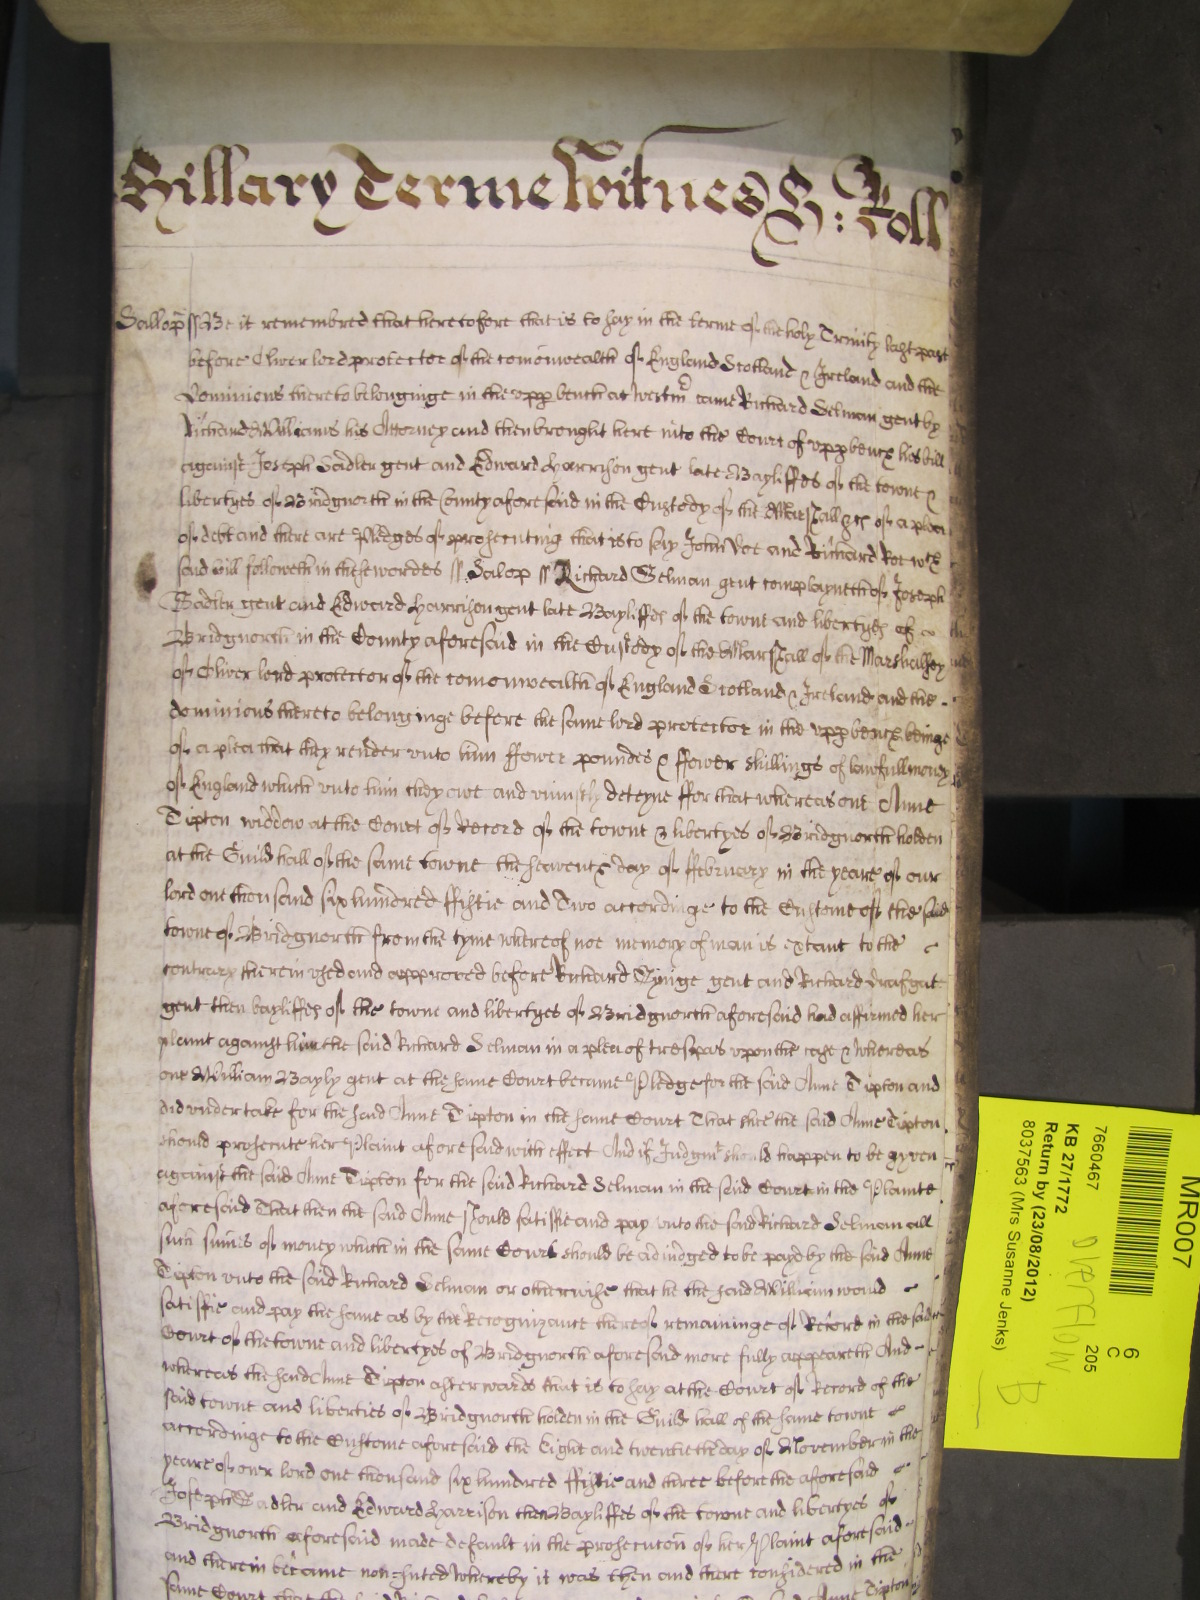 Hillary Terme Witnes S: Roll
Sallop ss Be it remembred that heretofore that is to say in the terme of the holy Trinity last past
before Oliver lord protector of the comonwealth of England Scotland & Ireland and the
Dominions thereto belonginge in the upp bench at Westm came Richard Selman gent by
Richard Williams his Attorney and then brought here into the Court of upp bench his bill
against Joseph Sadler gent and Edward Harrison gent late Bayliffes of the towne &
libertyes of Bridgnorth in the County aforesaid in the Custody of the Marshall &c of a plea
of debt and there are Pledges of prosecuting that is to say John Doe and Richard Roe wch
said bill followeth in these wordes ss Salop ss Richard Selman gent complayneth of Joseph
Sadler gent and Edward Harrison gent late Bayliffes of the towne and libertyes of
Bridgnorth in the County aforesaid in the Custody of the Marshall of the Marshalsey
of Oliver lord protector of the comonwealth of England Scotland & Ireland and the
dominions thereto belonginge before the same lord protector in the upp bench beinge
of a plea that they render unto him ffower poundes & ffower shillings of lawfull money
of England which unto him they owe and uniustly deteyne ffor that whereas one Anne
Tipton widdow at the Court of Record of the towne & libertyes of Bridgnorth holden
at the Guildhall of the same towne the seaventh day of ffebruary in the yeare of our
lord one thousand six hundred ffiftie and two accordinge to the Custome of the said
towne of Bridgnorth from the tyme whereof noe memory of man is extant to the
contrary therein used and approved before Richard gent and Richard
gent then bayliffes of the towne and libertyes of Bridgnorth aforesaid had affirmed her
plaint against him the said Richard Selman in a plea of trespas upon the case & whereas
one William Bayly gent at the same Court became Pledge for the said Anne Tipton and
did undertake for the said Anne Tipton in the same Court That shee the said Anne Tipton
should prosecute her Plaint aforesaid with effect And if Judgmt should happen to be gyven
against the said Anne Tipton for the said Richard Selman in the said Court in the Plainte
aforesaid That then the said Anne should satisfie and pay unto the said Richard Selman all
such sumes of money which in the same Court should be adiudged to be payd by the said Anne
Tipton unto the said Richard Selman or otherwise that he the said William would
satisfie and pay the same as by the Recognizance thereof remaininge of Record in the said
Court of the towne and libertyes of Bridgnorth aforesaid more fully appeareth And
whereas the said Anne Tipton afterwards that is to say at the Court of Record of the
said towne and liberties of Bridgnorth holden in the Guild hall of the same towne
accordinge to the Custome aforesaid the Eight and twentieth day of November in the
yeare of our lord one thousand six hundred ffiftie and three before the aforesaid
Joseph Sadler and Edward Harrison then Bayliffes of the towne and libertyes of
Bridgnorth aforesaid made default in the prosecucon of her Plaint aforesaid
and therein became non-suted whereby it was then and there considered in the
same Court that the said Anne Tipton
MR007
6
C
205
7660467
KB 27/1772
Return by (23/08/2012)
8037563 (Mrs Susanne Jenks)
OVERFLOW
B